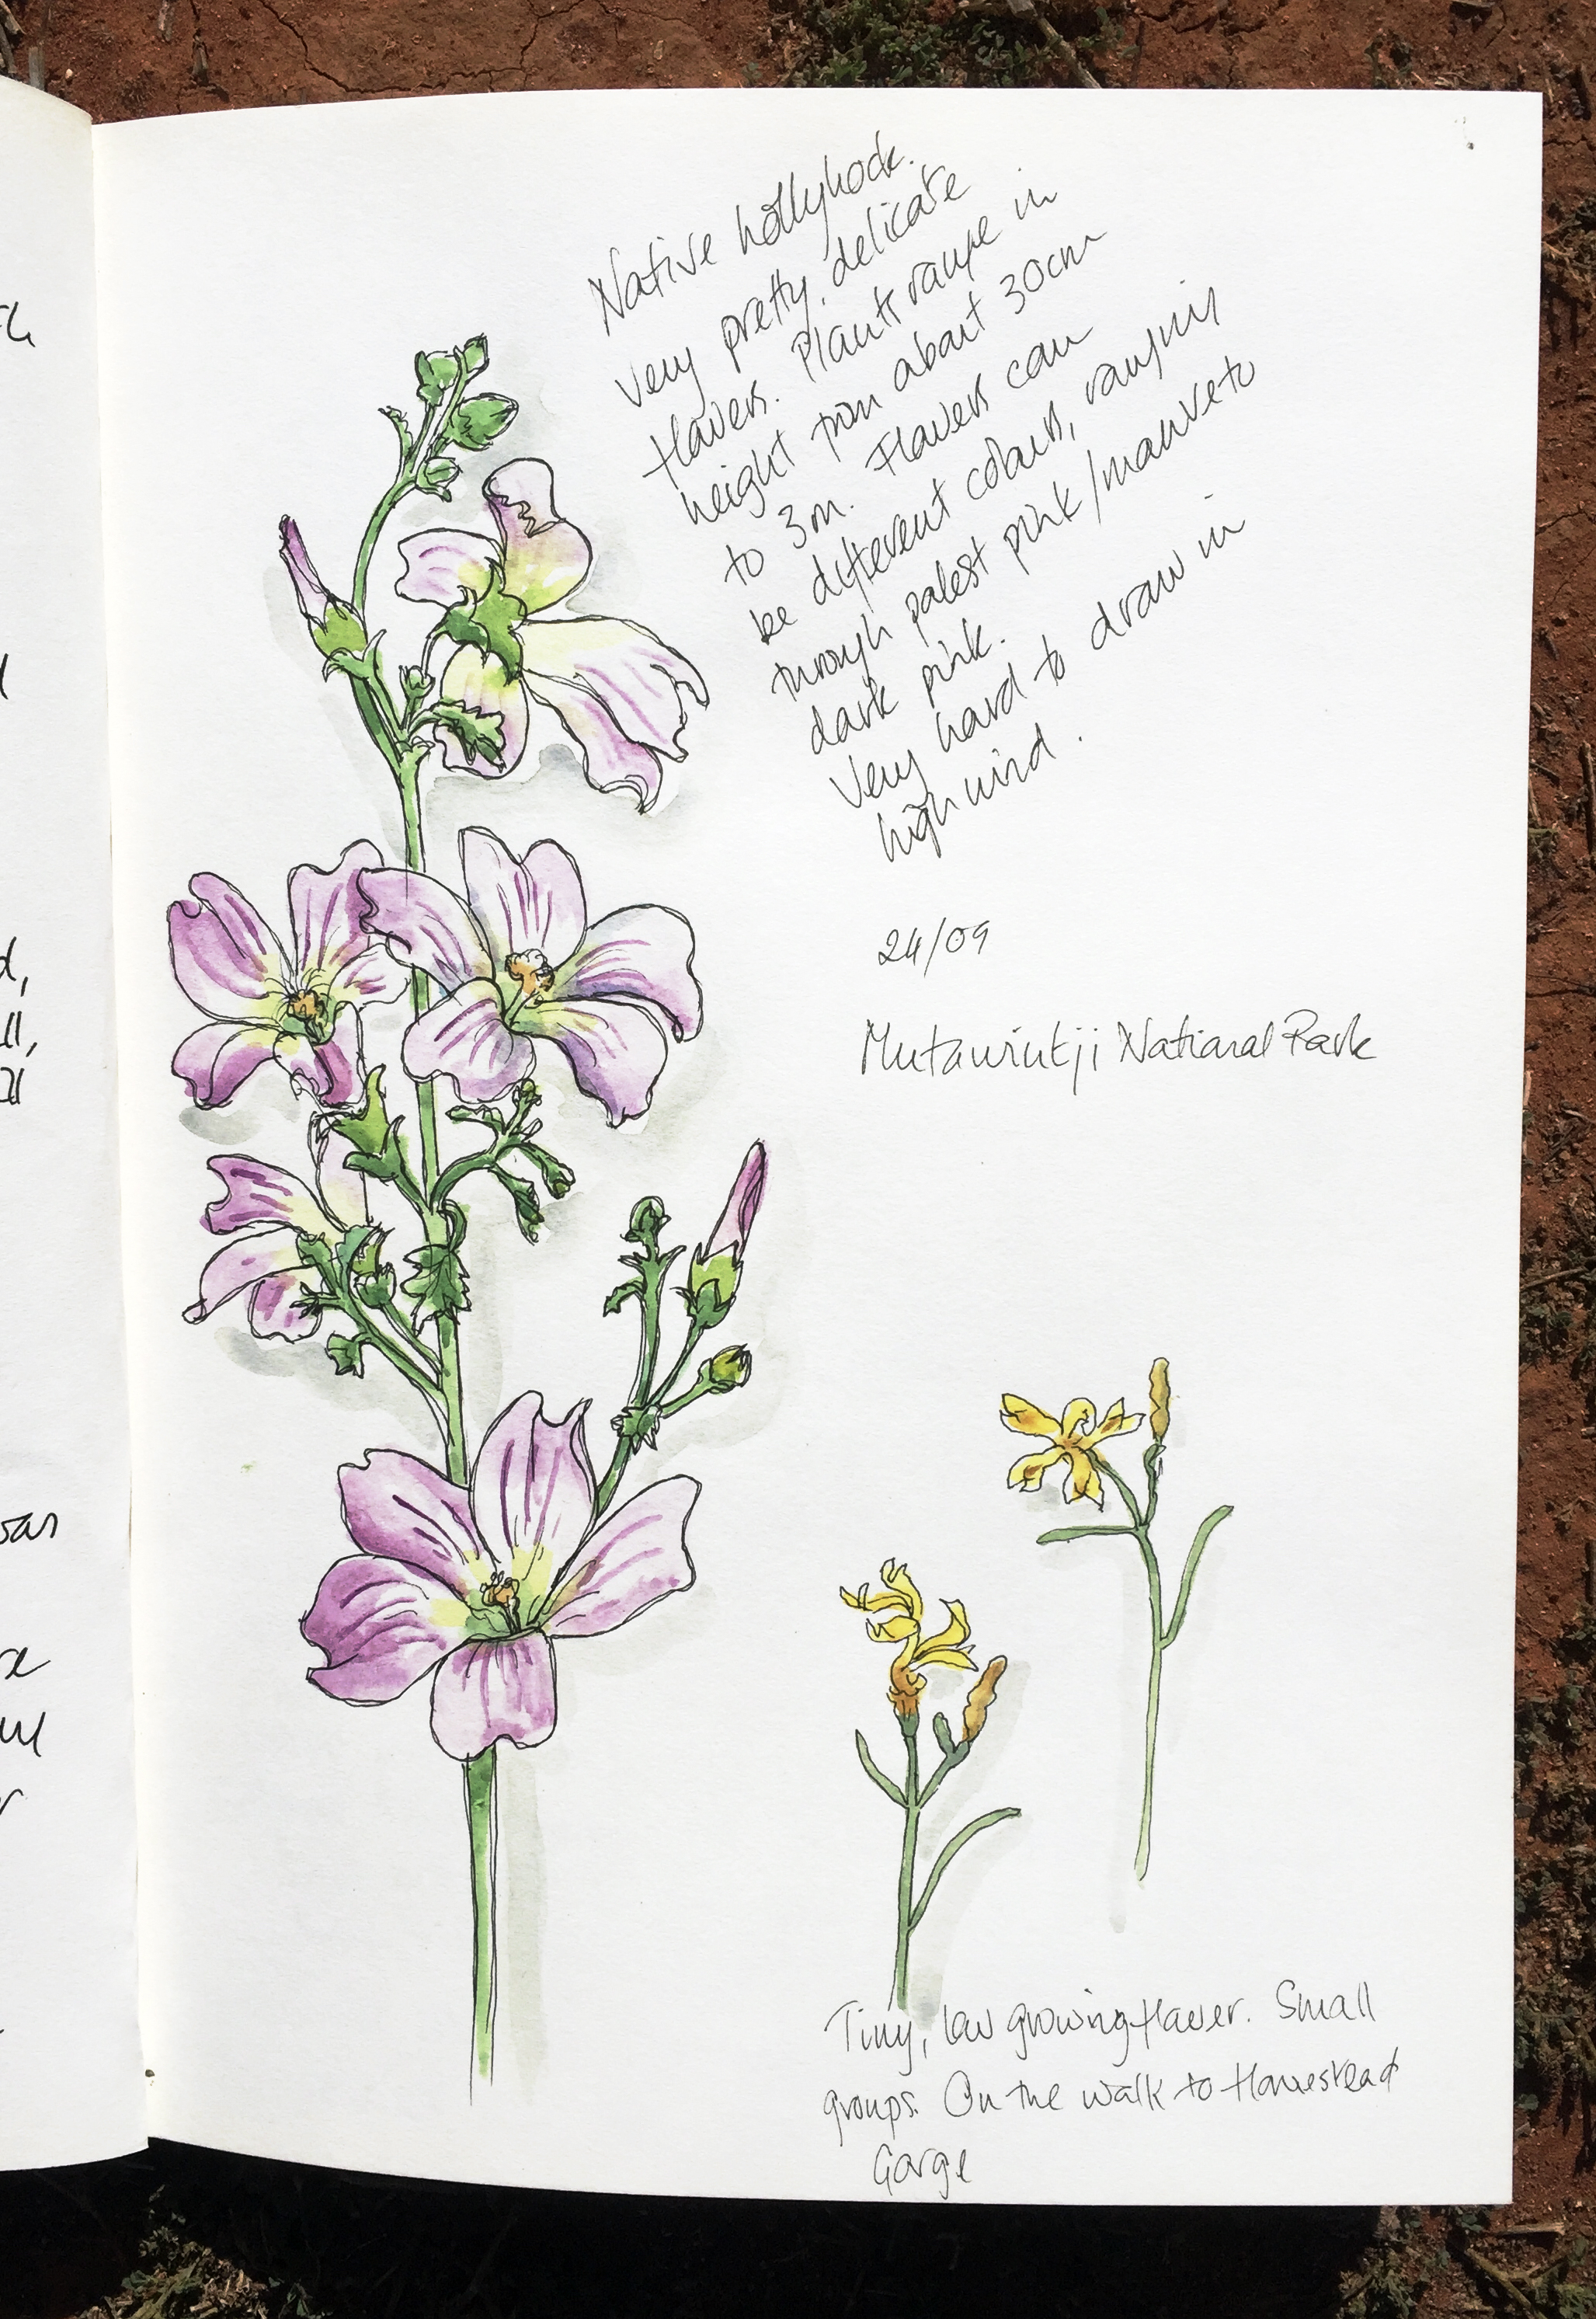 Native hollyhock.
Very pretty, delicate
flowers. Plants range in
height from about 30cm
to 3m. Flowers can
be different colours, ranging
through palest pink/mauve to
dark pink.
Very hard to draw in
high wind.
24/09
Mutawintji National Park
Tiny, low growing flower. Small
groups. On the walk to Homestead
Gorge